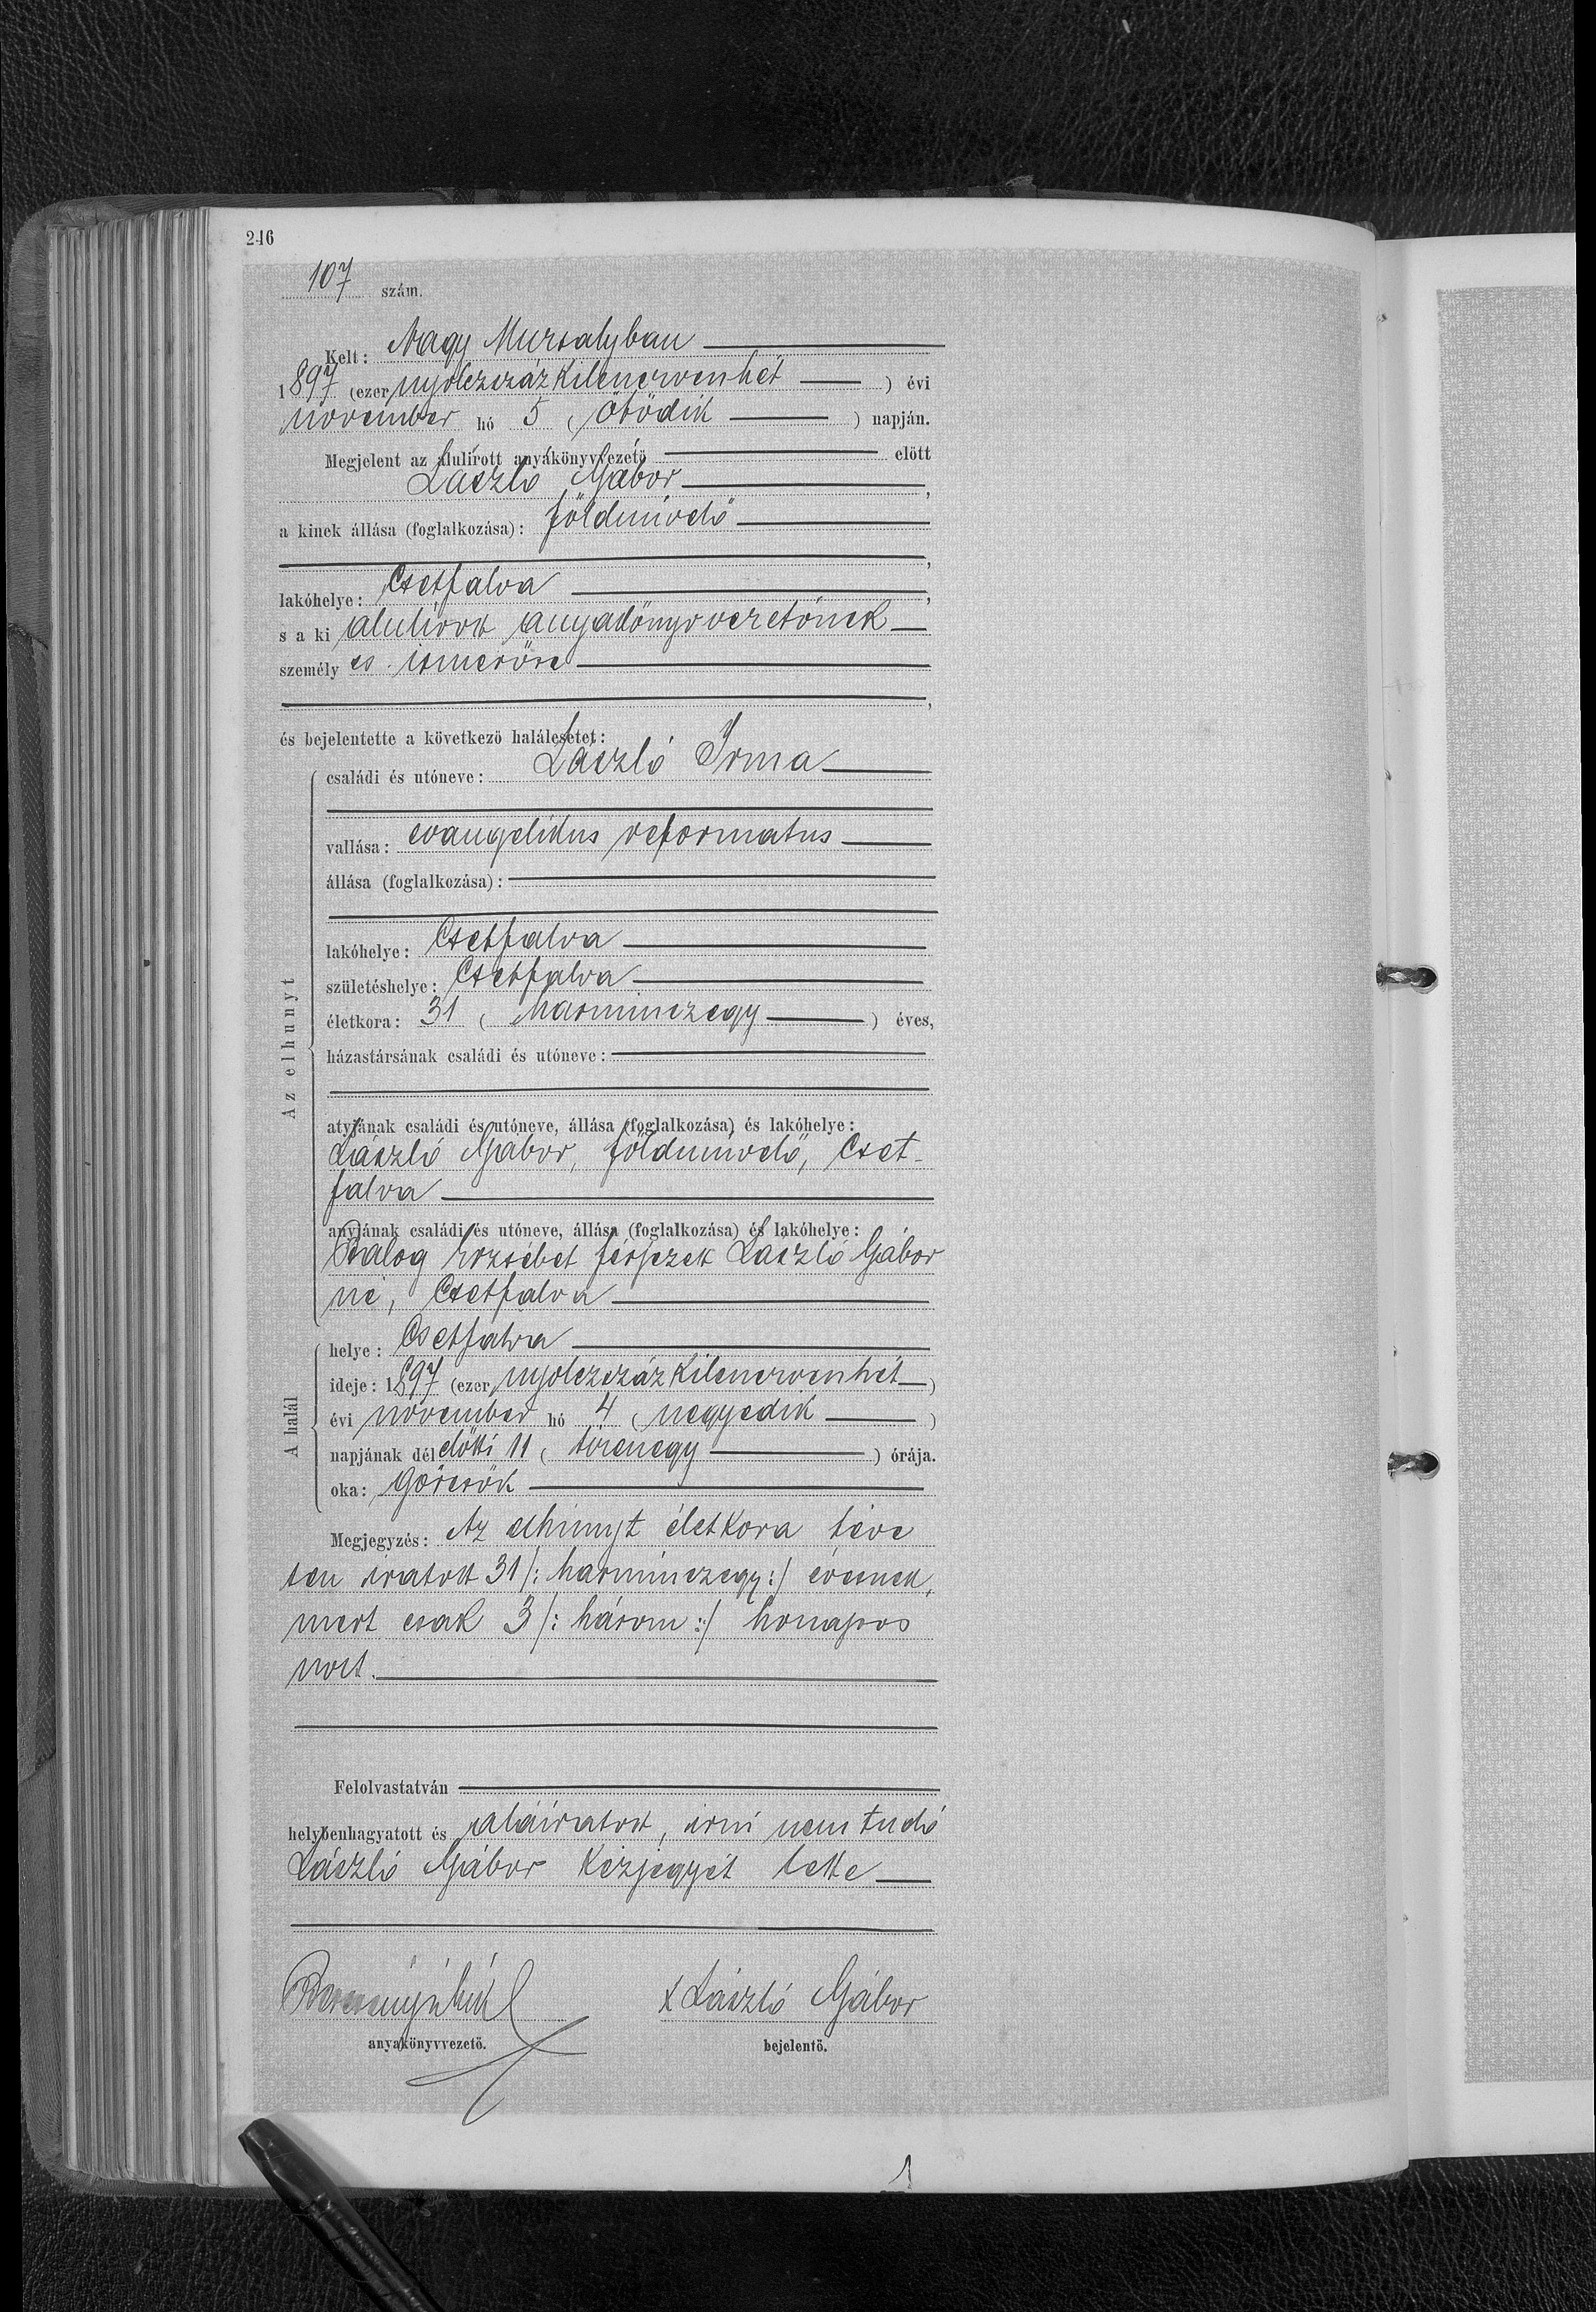 246
107 szám.
Kelt: Nagy Muzsalyban
1897 (ezer nyolczszázkilenczvenhét) évi
november hó 5 (ötödik) napján.
Megjelent az alulírott anyakönyvvezető előtt
László Gábor,
a kinek állása (foglalkozása): földmivelő
,
lakóhelye: Csetfalva,
s a ki alulirott anyakönyvvezetőnek
személyes ismerőse
,
és bejelentette a következő halálesetet:
Az elhunyt
családi és utóneve: László Irma
vallása: evangelikus reformatus
állása (foglalkozása):
lakóhelye: Csetfalva
születéshelye: Csetfalva
életkora: 31 (harminczegy) éves,
házastársának családi és utóneve:
atyjának családi és utóneve, állása (foglalkozása) és lakóhelye:
László Gábor, földmivelő, Cset-
falva
anyjának családi és utóneve, állása (foglalkozása) és lakóhelye:
Balog Erzsébet férjezett László Gábor
né, Csetfalva
A halál
helye: Csetfalva
ideje: 1897 (ezer nyolczszázkilenczvenhét)
évi november hó 4 (negyedik)
napjának délelőtti 11 (tizenegy) órája.
oka: görcsök
Megjegyzés: Az elhunyt életkora téve
sen iratott 31 /: harminczegy :/ évesnek,
mert csak 3 /: három :/ honapos
volt.
Felolvastatván
helybenhagyatott és aláiratott, irni nem tudó
László Gábor kézjegyét tette
x László Gábor
anyakönyvvezető. bejelentő.
1